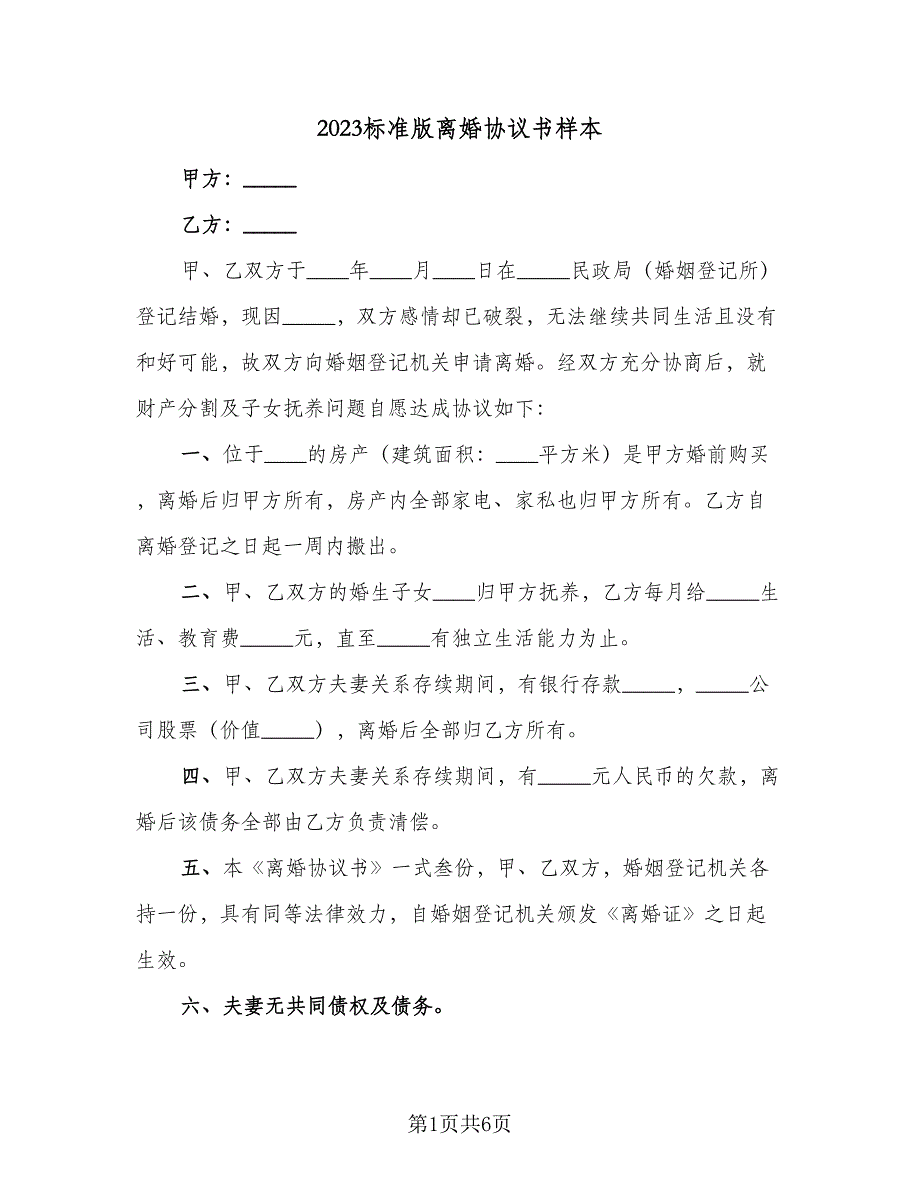 2023标准版离婚协议书样本
甲方：_____
乙方：_____
甲、乙双方于____年____月____日在_____民政局（婚姻登记所）
登记结婚，现因_____，双方感情却已破裂，无法继续共同生活且没有
和好可能，故双方向婚姻登记机关申请离婚。经双方充分协商后，就
财产分割及子女抚养问题自愿达成协议如下：
一、位于____的房产（建筑面积：____平方米）是甲方婚前购买
，离婚后归甲方所有，房产内全部家电、家私也归甲方所有。乙方自
离婚登记之日起一周内搬出。
二、甲、乙双方的婚生子女____归甲方抚养，乙方每月给_____生
活、教育费_____元，直至_____有独立生活能力为止。
三、甲、乙双方夫妻关系存续期间，有银行存款_____，_____公
司股票（价值_____），离婚后全部归乙方所有。
四、甲、乙双方夫妻关系存续期间，有_____元人民币的欠款，离
婚后该债务全部由乙方负责清偿。
五、本《离婚协议书》一式叁份，甲、乙双方，婚姻登记机关各
持一份，具有同等法律效力，自婚姻登记机关颁发《离婚证》之日起
生效。
六、夫妻无共同债权及债务。
第1页共6页